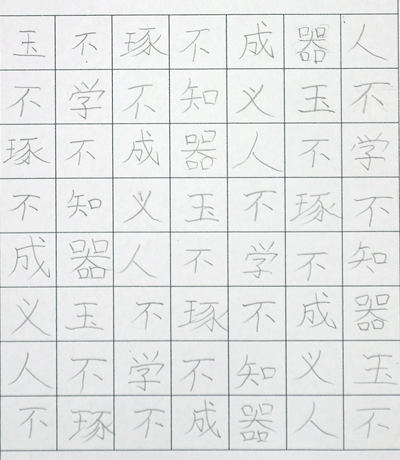 玉不琢不成器人
不学不知义玉不
琢不成器人不学
不知义玉不琢不
成器人不学不知
义玉不琢不成器
人不学不知义玉
不琢不成器人不